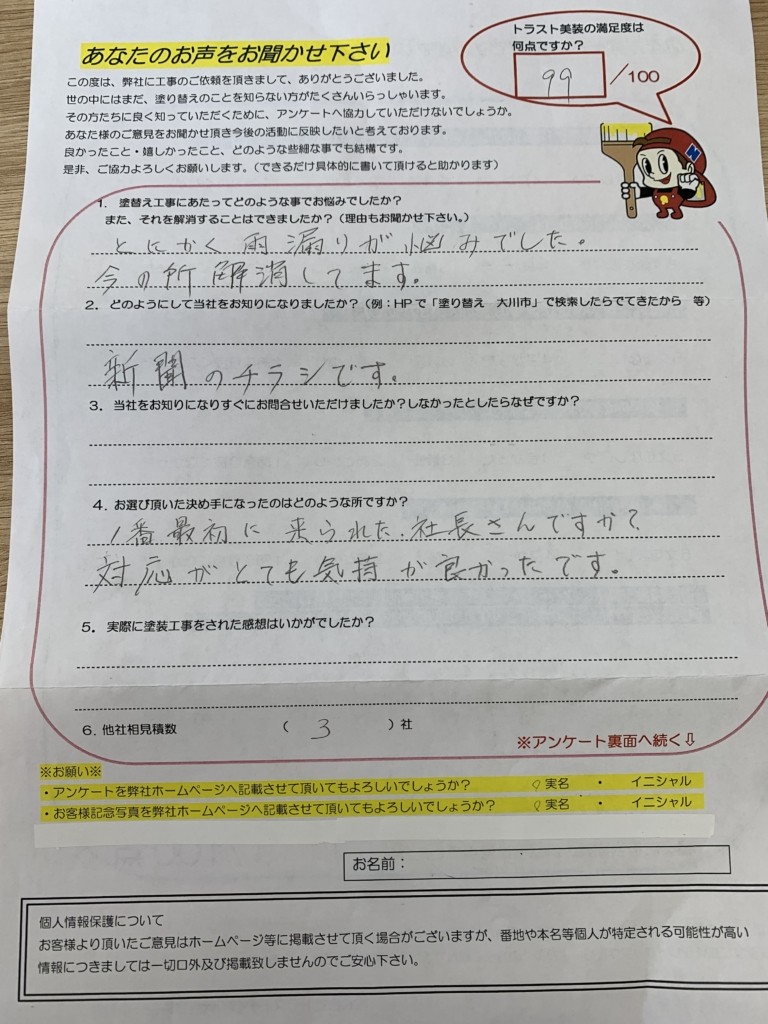 あなたのお声をお聞かせ下さい
トラスト美装の満足度は
何点ですか?
99 /100
この度は、弊社に工事のご依頼を頂きまして、ありがとうございました。
世の中にはまだ、塗り替えのことを知らない方がたくさんいらっしゃいます。
その方たちに良く知っていただくために、アンケートへ協力していただけないでしょうか。
あなた様のご意見をお聞かせ頂き今後の活動に反映したいと考えております。
良かったこと・嬉しかったこと、どのような些細な事でも結構です。
是非、ご協力よろしくお願いします。(できるだけ具体的に書いて頂けると助かります)
N
1. 塗替え工事にあたってどのような事でお悩みでしたか?
また、それを解消することはできましたか?(理由もお聞かせ下さい。)
とにかく雨漏りが悩みでした。
今の所解消してます。
2. どのようにして当社をお知りになりましたか?(例:HPで「塗り替え 大川市」で検索したらでてきたから 等)
新聞のチラシです。
3. 当社をお知りになりすぐにお問合せいただけましたか?しなかったとしたらなぜですか?
4. お選び頂いた決め手になったのはどのような所ですか?
1番最初に来られた、社長さんですか?
対応がとても気持が良かったです。
5. 実際に塗装工事をされた感想はいかがでしたか?
6. 他社相見積数 ( 3 )社
※アンケート裏面へ続く⇩
※お願い※
・アンケートを弊社ホームページへ記載させて頂いてもよろしいでしょうか? 実名 ・ イニシャル
・お客様記念写真を弊社ホームページへ記載させて頂いてもよろしいでしょうか? 実名 ・ イニシャル
お名前:
個人情報保護について
お客様より頂いたご意見はホームページ等に掲載させて頂く場合がございますが、番地や本名等個人が特定される可能性が高い
情報につきましては一切口外及び掲載致しませんのでご安心下さい。